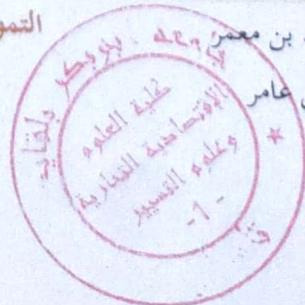 التمو
بن معمر
عامر
جامعة بوبكر بلقايد
كلية العلوم
الاقتصادية التجارية
وعلوم التسيير
-1-